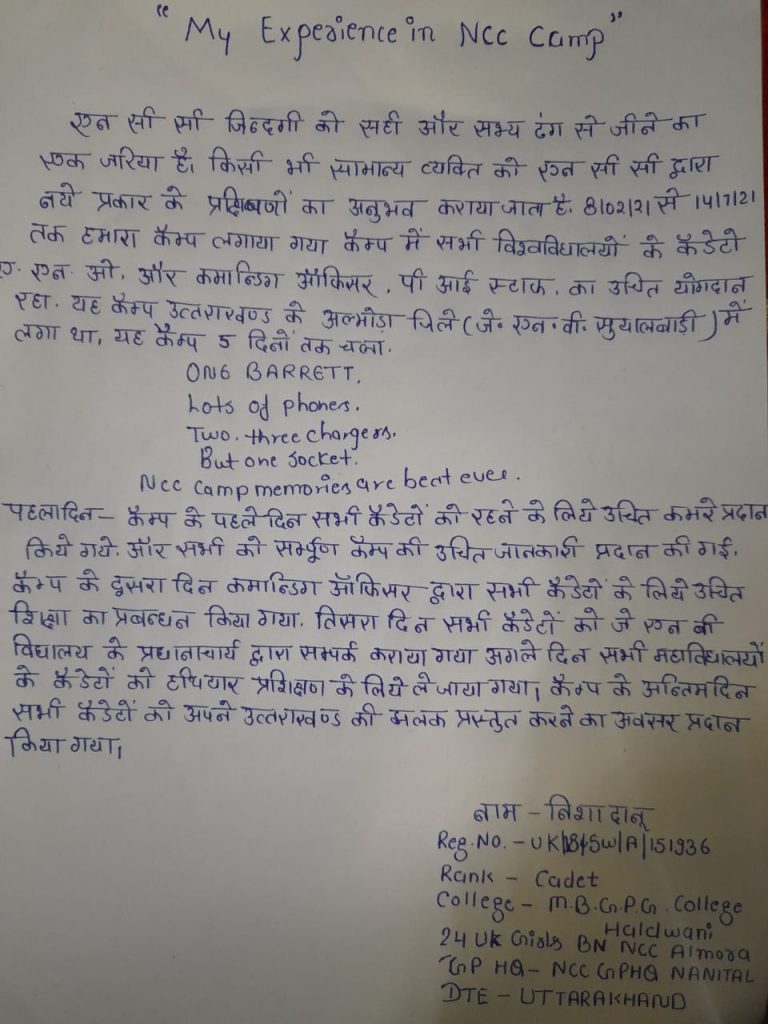 "My Experience in NCC Camp"
एन सी सी जिन्दगी को सही और सभ्य ढंग से जीने का
एक जरिया है। किसी भी सामान्य व्यक्ति को एन सी सी द्वारा
नये प्रकार के का अनुभव कराया जाता है. 8/02/21 से 14/7/21
तक हमारा कैम्प लगाया गया कैम्प में सभी विश्वविधालयों के कैडेटो
ए. एन. ओ. और कमान्डिग ऑफिसर, पी आई स्टाफ. का उचित योगदान
रहा. यह कैम्प उत्तराखण्ड के अल्मोड़ा जिले (जे. एन. वी. सुयालबाड़ी) में
लगा था, यह कैम्प 5 दिनों तक चला.
ONE BARRETT.
Lots of phoners.
Two. three chargers.
But one socket.
Ncc camp memories are beat ever.
पहला दिन – कैम्प के पहले दिन सभी कैडेटों को रहने के लिये उचित कमरे प्रदान
किये गये. और सभी को सर्म्पूण कैम्प की उचित जानकारी प्रदान की गई.
कैम्प के दुसरा दिन कमान्डिग ऑफिसर द्वारा सभी कैडेटों के लिये उचित
शिक्षा का प्रबन्धन किया गया. तिसरा दिन सभी कैडेटों को जे एन बी
विधालय के प्रधानाचार्य द्वारा सम्पर्क कराया गया अगले दिन सभी महाविधालयों
के कैडेटों को हथियार प्रशिक्षण के लिये ले जाया गया। कैम्प के अन्तिम दिन
सभी कैडेटों को अपने उत्तराखण्ड की झलक प्रस्तुत करने का अवसर प्रदान
किया गया।
नाम – निशा दानू
Reg. No. – UK/18/SW/A/151936
Rank – Cadet
College – M.B.G.P.G. College
Haldwani
24 UK Girls BN NCC Almora
GP HQ – NCC GPHQ NANITAL
DTE – UTTARAKHAND